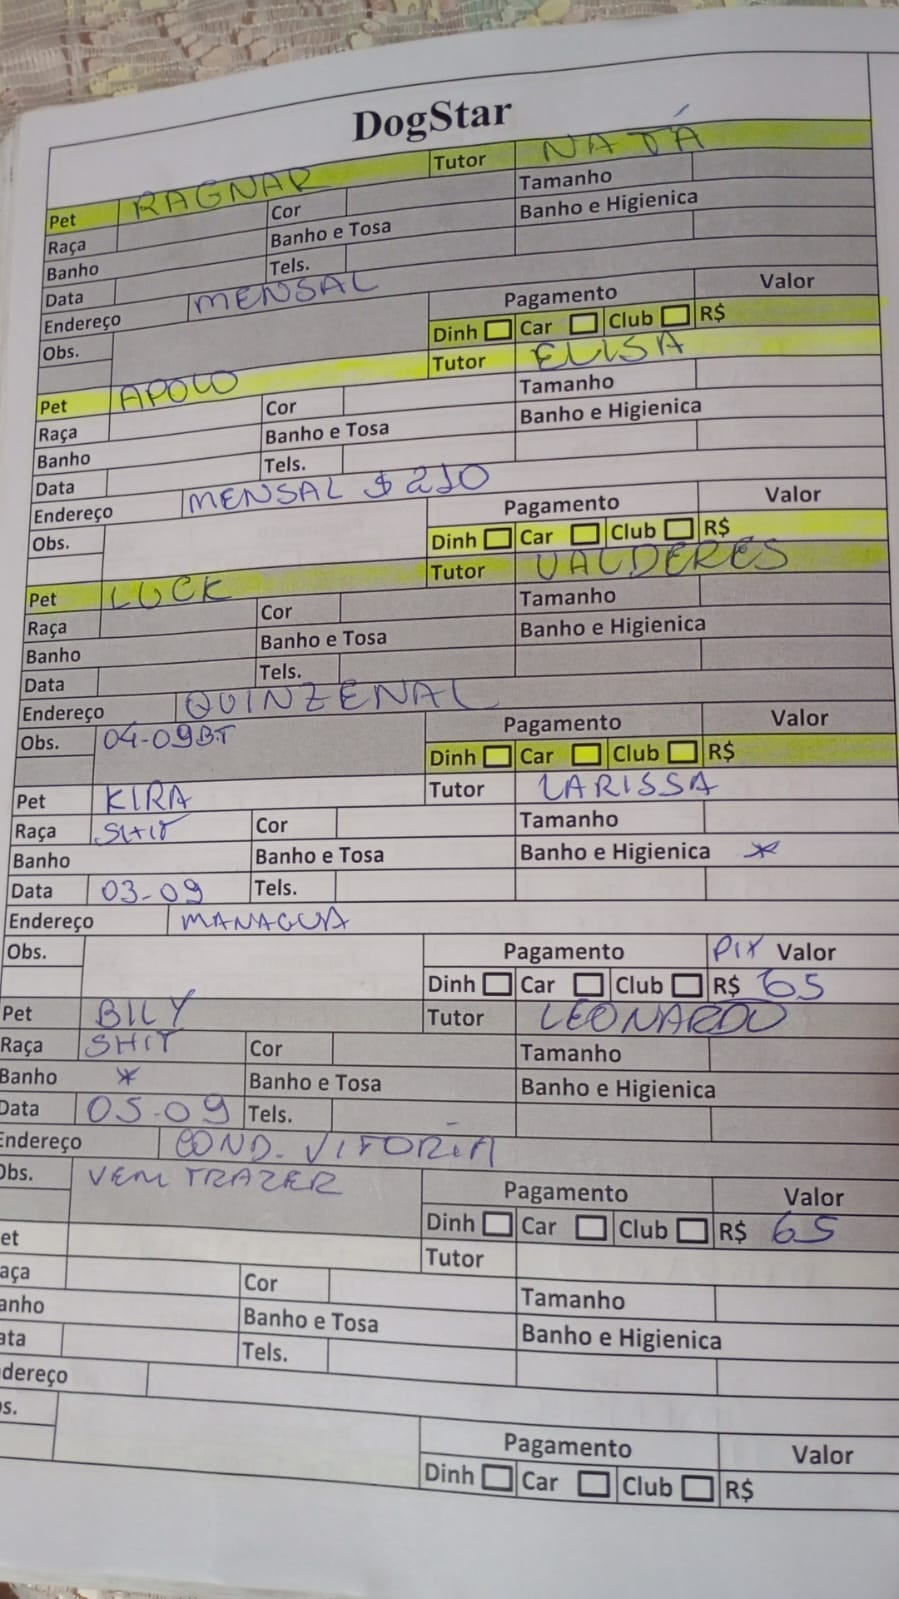 DogStar
Pet RAGNAR Tutor NATÁ
Raça Cor Tamanho
Banho Banho e Tosa Banho e Higienica
Data Tels.
Endereço MENSAL
Obs. Pagamento Valor
Dinh Car Club R$
Pet APOLO Tutor ELISA
Raça Cor Tamanho
Banho Banho e Tosa Banho e Higienica
Data Tels.
Endereço MENSAL $ 210
Obs. Pagamento Valor
Dinh Car Club R$
Pet LUCK Tutor VALDERES
Raça Cor Tamanho
Banho Banho e Tosa Banho e Higienica
Data Tels.
Endereço QUINZENAL
Obs. 04-09 BT Pagamento Valor
Dinh Car Club R$
Pet KIRA Tutor LARISSA
Raça SHIT Cor Tamanho
Banho Banho e Tosa Banho e Higienica *
Data 03-09 Tels.
Endereço MANAGUA
Obs. Pagamento PIX Valor
Dinh Car Club R$ 65
Pet BILY Tutor LEONARDO
Raça SHIT Cor Tamanho
Banho * Banho e Tosa Banho e Higienica
Data 05-09 Tels.
Endereço COND. VITORIA
Obs. VEM TRAZER Pagamento Valor
Dinh Car Club R$ 65
et Tutor
aça Cor Tamanho
anho Banho e Tosa Banho e Higienica
ata Tels.
dereço
s. Pagamento Valor
Dinh Car Club R$